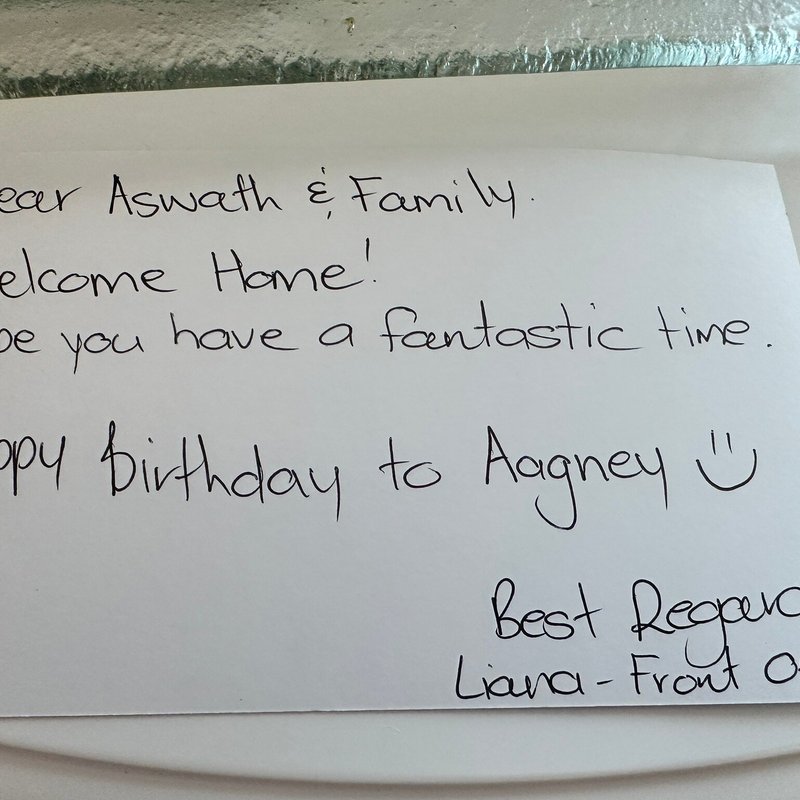 ear Aswath & Family.
elcome Home!
pe you have a fantastic time.
ppy Birthday to Aagney
Best Regard
Liana - Front O